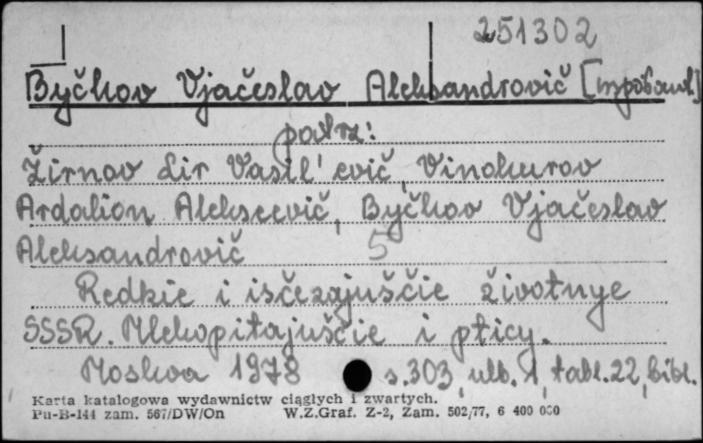 251302
Byčkov Vjačeslav Aleksandrovič
patrz:
Žirnov Lir Vasil'evič, Vinokurov
Ardalion Alekseevič, Byčkov Vjačeslav
Aleksandrovič 5
Redkie i isčezajuščie životnye
SSSR. Mlekopitajuščie i pticy.
Moskva 1978 s.303, ulb. 1, tabl.22, bibl.
Karta katalogowa wydawnictw ciągłych i zwartych.
Pu-B-144 zam. 567/DW/On W.Z.Graf. Z-2, Zam. 502/77, 6 400 000